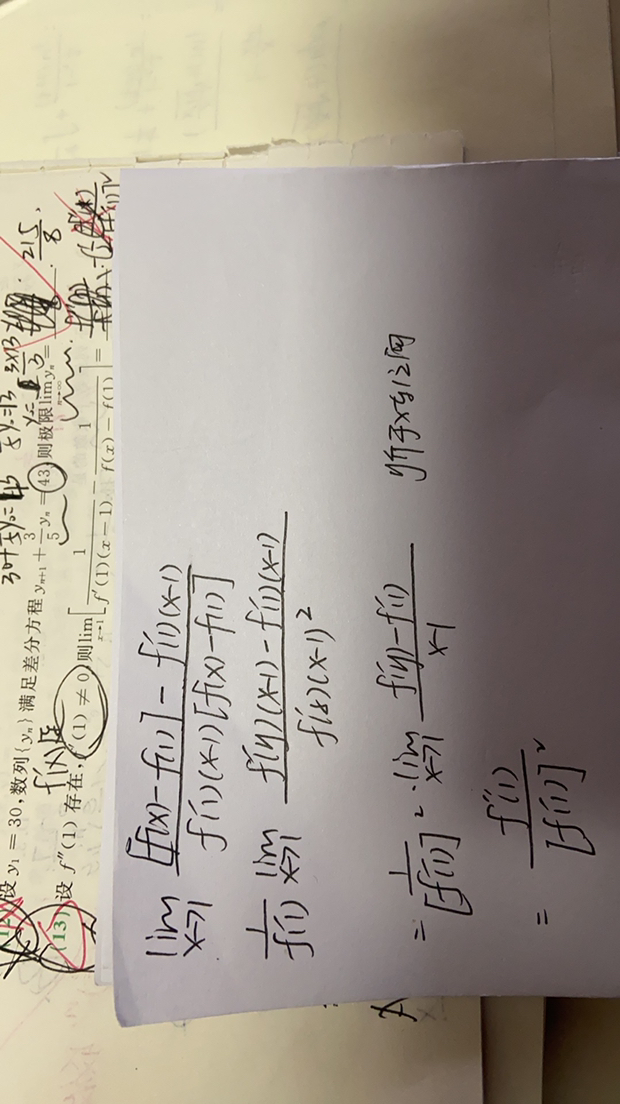 设 y₁ = 30, 数列{yₙ}满足差分方程 yₙ₊₁ + 3/5 yₙ = 43, 则极限 lim_{n→∞} yₙ = 215/8.
(13) 设 f″(1) 存在, f′(1) ≠ 0, 则 lim_{x→1} [1/(f′(1)(x−1)) − 1/(f(x)−f(1))] =
lim_{x→1} ([f(x)−f(1)] − f′(1)(x−1))/(f′(1)(x−1)[f(x)−f(1)])
1/f′(1) lim_{x→1} (f′(η)(x−1) − f′(1)(x−1))/(f′(x)(x−1)²)
= 1/[f′(1)]² · lim_{x→1} (f′(η)−f′(1))/(x−1) η介于x与1之间
= f″(1)/[f′(1)]²